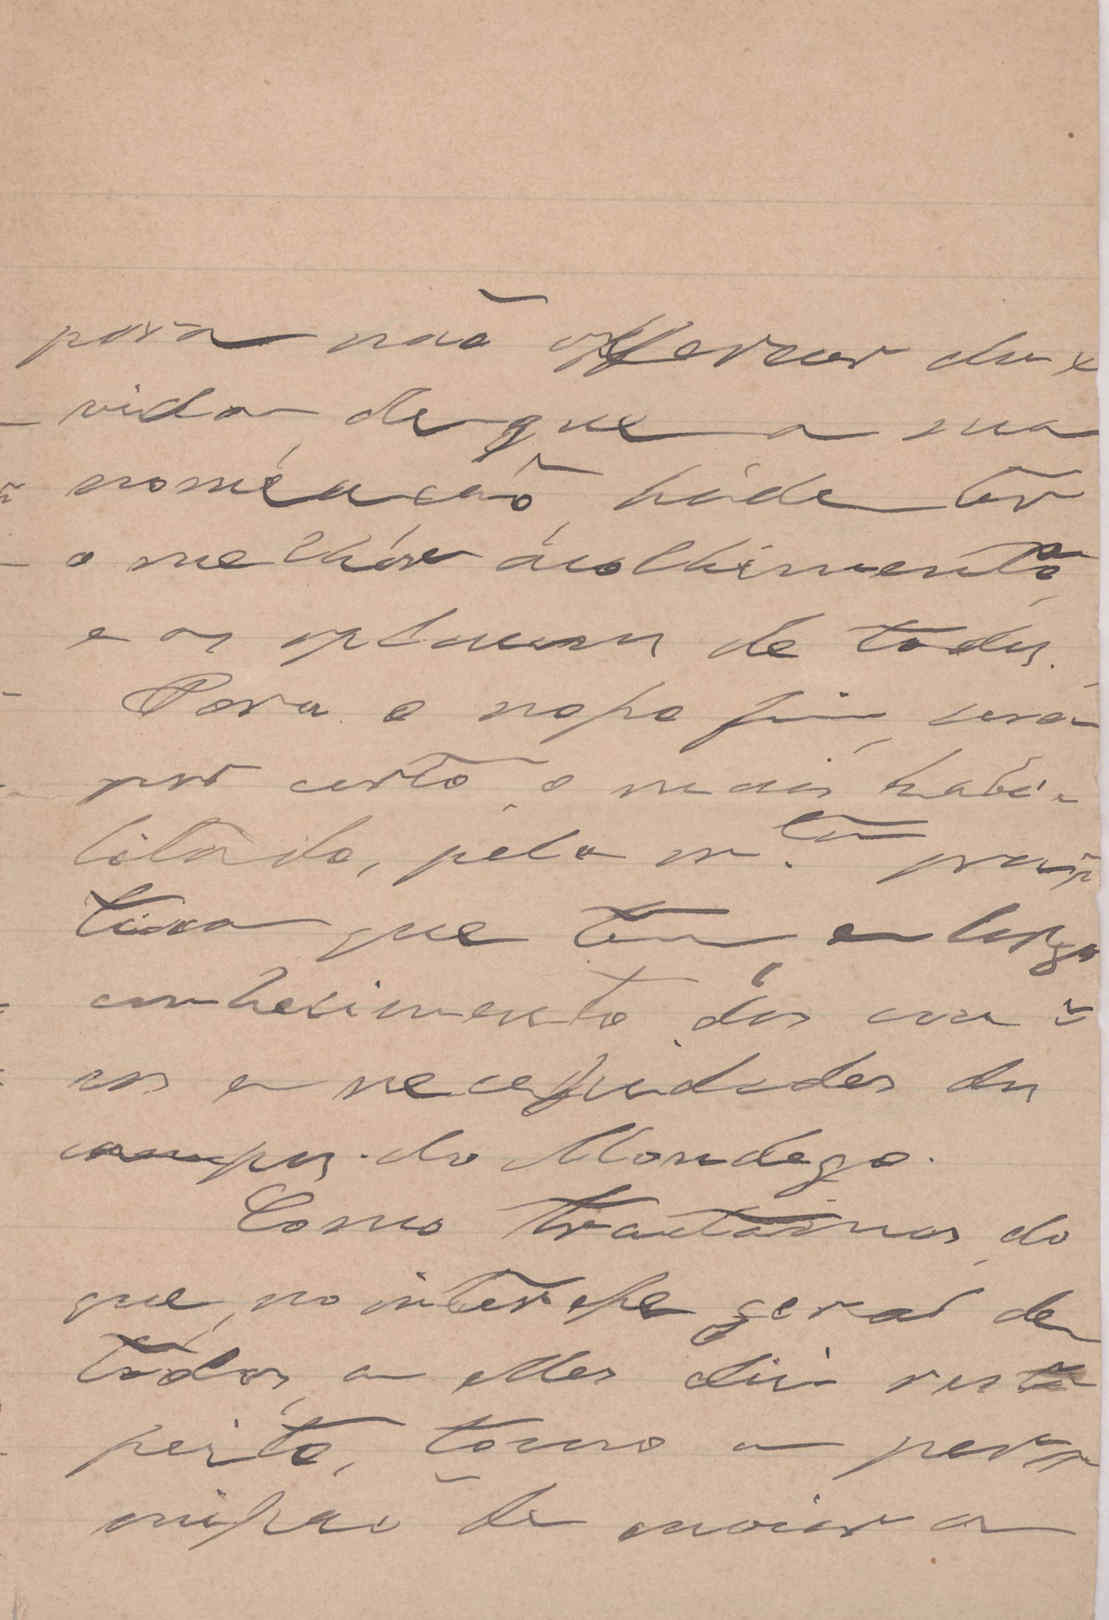 para não offerecer du-
vida de que a sua
nomeação, háde ter
o melhor acolhimento,
e os de todos.
Para o nosso fim, será
por certo, o mais habi-
litado, pela m.ta pra-
tica que tem e largo
conhecimento dos cos
e necessidades dos
campos do Mondego.
Como tractamos do
que, no interesse geral de
todos, a elles diz res-
peito, tomo a per-
missão de enviar a